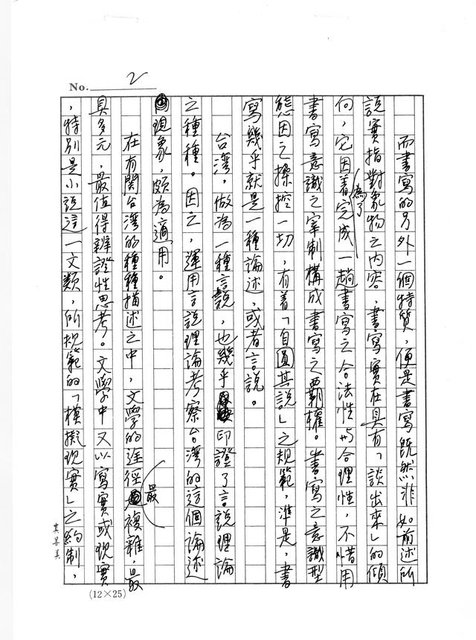 No. 2
而書寫的另外一個特質，便是書寫既然非如前述所
說實指對象物之內容，書寫實在具有「談出來」的傾
向，它因著為了完成一趟書寫之合法性與合理性，不惜用
書寫意識之宰制構成書寫之霸權。書寫之意識型
態因之操控一切，有著「自圓其說」之規範，準是，書
寫幾乎就是一種論述，或者言說。
台灣，做為一種言說，也幾乎印證了言說理論
之種種。因之，運用言說理論考察台灣的這個論述
現象，頗為適用。
在有關台灣的種種描述之中，文學的途徑最複雜，最
具多元，最值得辨證性思考。文學中又以寫實或現實
，特別是小說這一文類，所規範的「模擬現實」之約制，
(12×25)